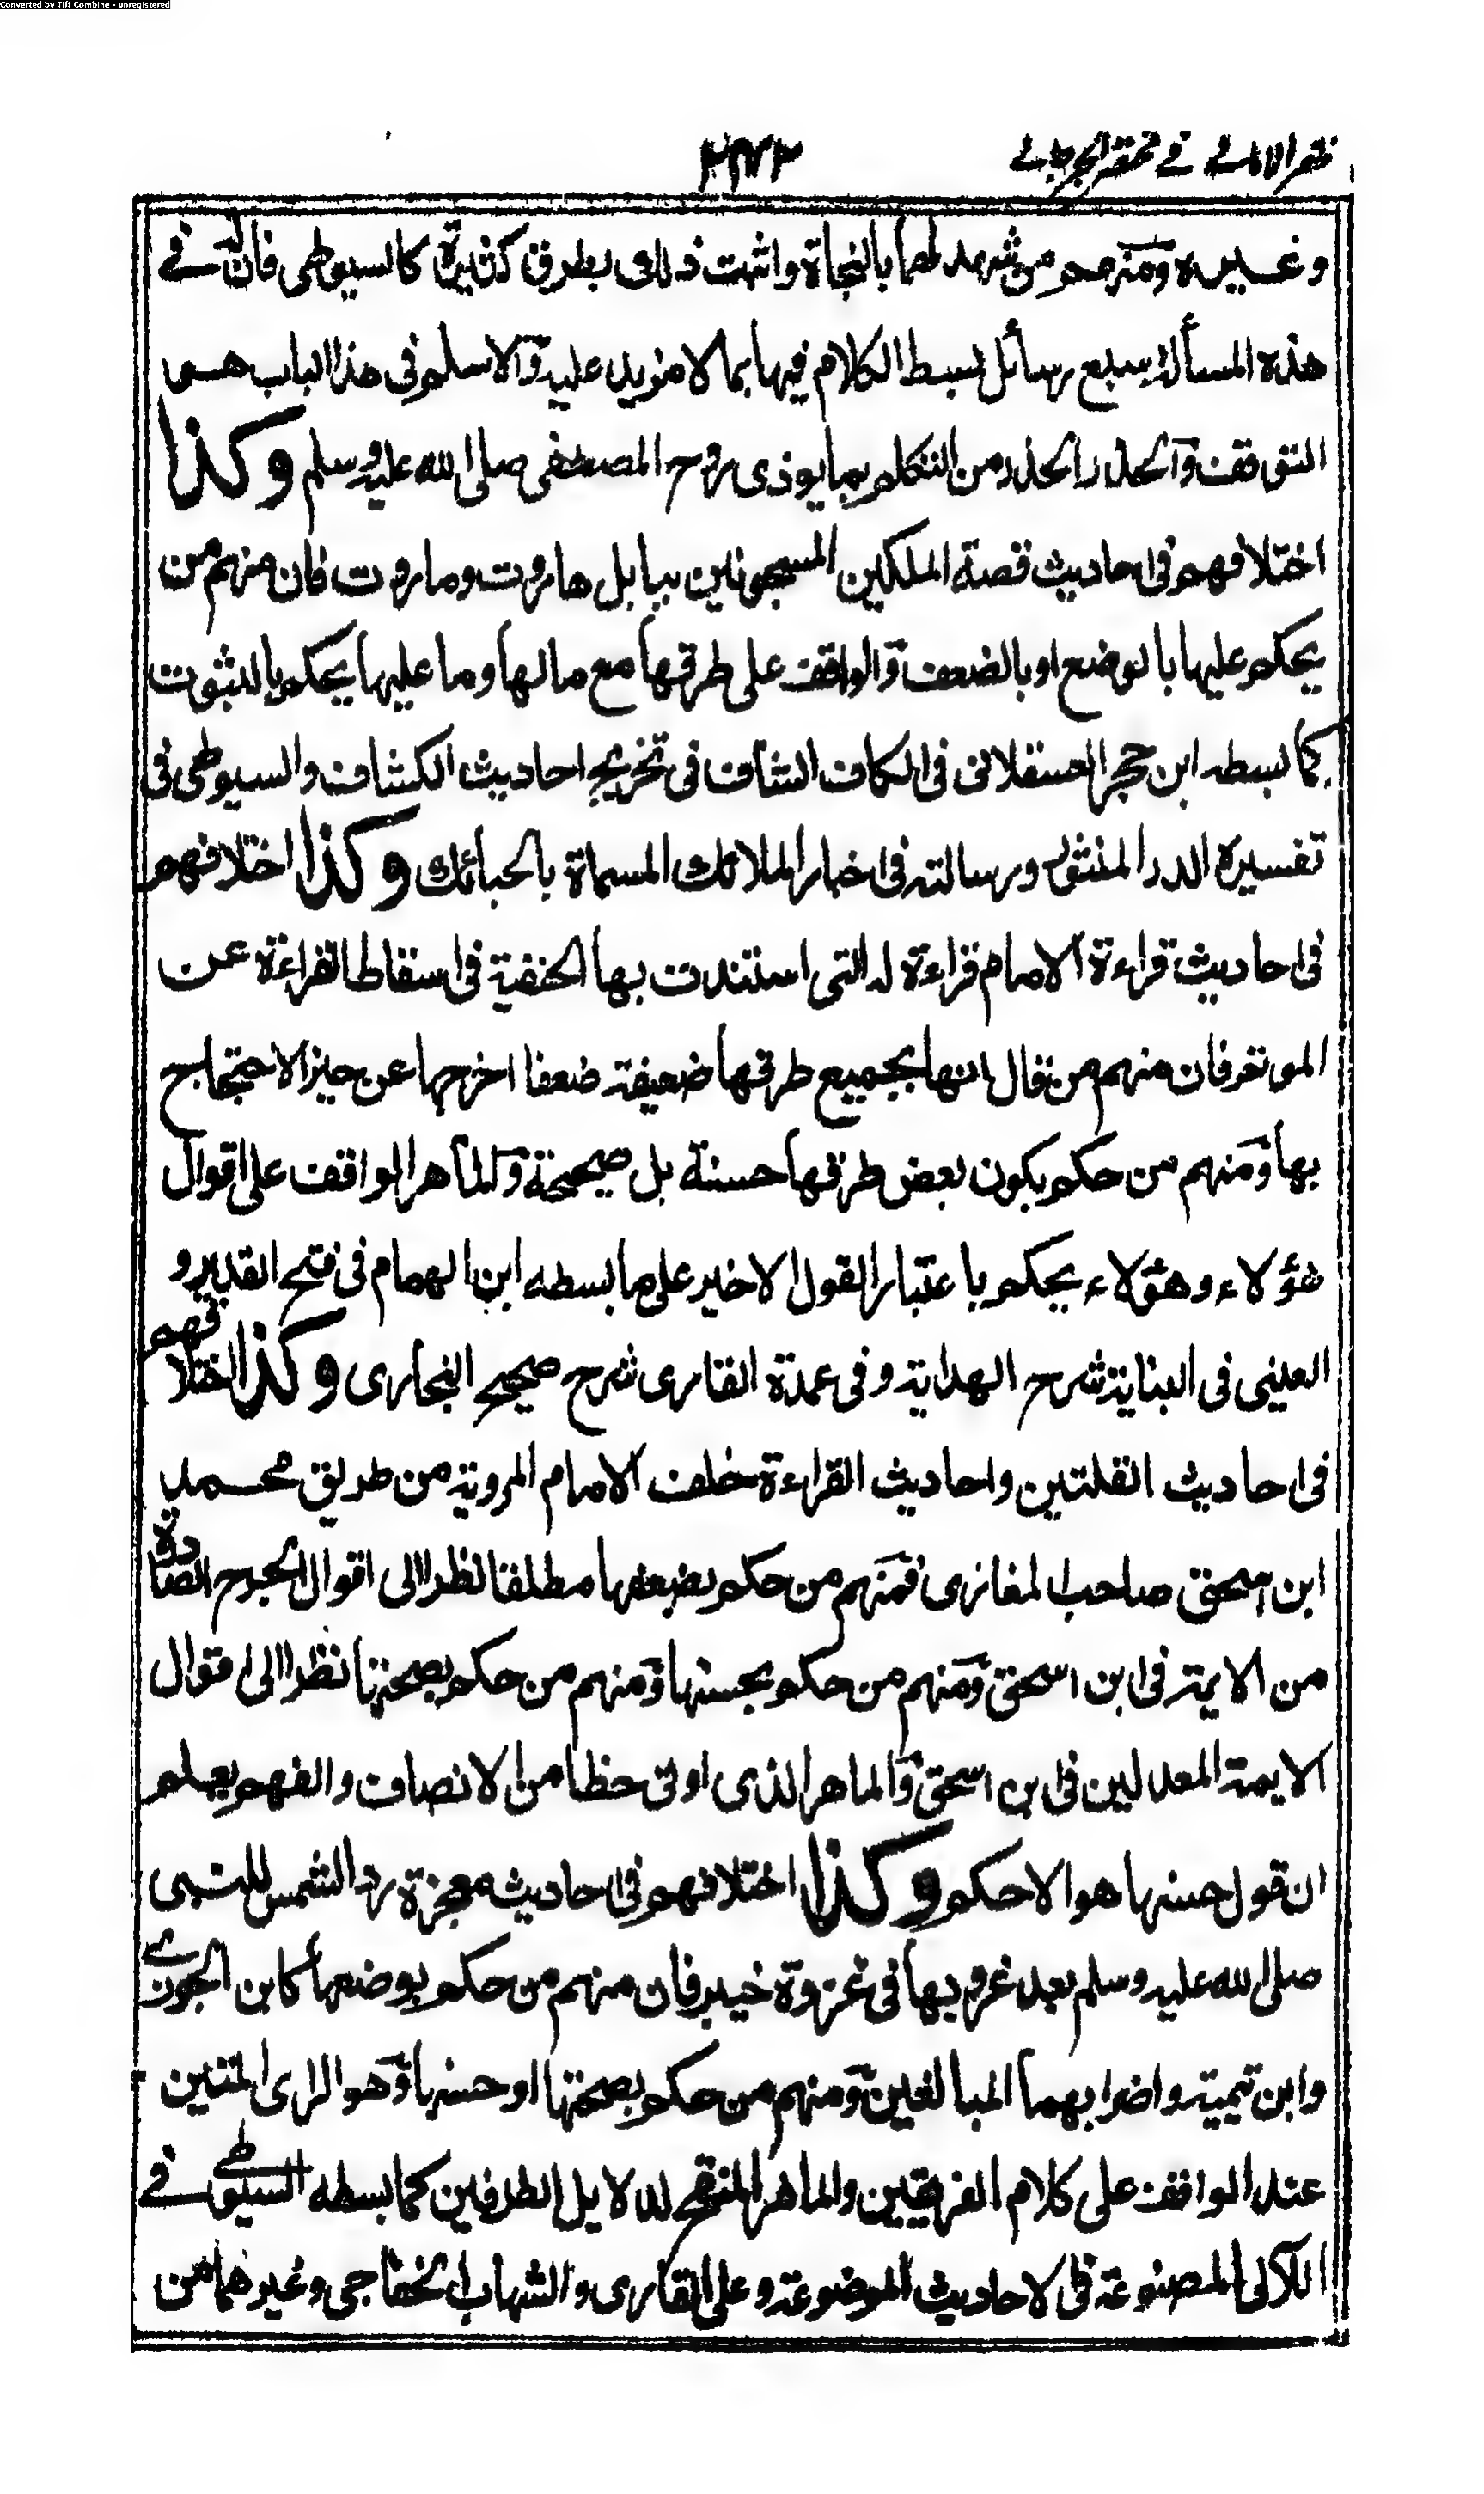 Converted by Tiff Combine - unregistered
ظفر الامانے فے مختصر الجرجانے
وغيره ومنهم من شهد لهما بالنجاة واثبت ذلك بطرق كثيرة كالسيوطى فان له فے
هذه المسألة سبع رسائل بسط الكلام فيها بما لا مزيد عليه والاسلم فى هذا الباب هو
التوقف والحذر الحذر من التكلم بما يوذى روح المصطفى صلى الله عليه وسلم وكذا
اختلافهم فى احاديث قصة الملكين المسجونين ببابل هاروت وماروت فان منهم من
يحكم عليها بالوضع او بالضعف والواقف على طرقها مع مالها وما عليها يحكم بالثبوت
كما بسطه ابن حجر العسقلانى فى الكاف الشاف فى تخريج احاديث الكشاف والسيوطى فى
تفسيره الدر المنثور ورسالته فى اخبار الملائك المسماة بالحبائك وكذا اختلافهم
فى احاديث قراءة الامام قراءة له التى استندت بها الحنفية فى اسقاط القراءة عن
الموتم فان منهم من قال انها بجميع طرقها ضعيفة ضعفا اخرجها عن حيز الاحتجاج
بها ومنهم من حكم بكون بعض طرقها حسنة بل صحيحة والماهر الواقف على اقوال
هؤلاء وهؤلاء يحكم باعتبار القول الاخير على ما بسطه ابن الهمام فى فتح القدير و
العينى فى البناية شرح الهداية وفى عمدة القارى شرح صحيح البخارى وكذا اختلافهم
فى احاديث القلتين واحاديث القراءة خلف الامام المروية من طريق محمد
ابن اسحق صاحب المغازى فمنهم من حكم بضعفها مطلقا نظرا الى اقوال الجرح الصادة
من الايمة فى ابن اسحق ومنهم من حكم بحسنها ومنهم من حكم بصحتها نظرا الى اقوال
الايمة المعدلين فى ابن اسحق والماهر الذى اوتى حظا من الانصاف والفهم يعلم
ان قول حسنها هو الاحكم وكذا اختلافهم فى احاديث معجزة رد الشمس للنبى
صلى الله عليه وسلم بعد غروبها فى غزوة خيبر فان منهم من حكم بوضعها كابن الجوزے
وابن تيمية واضرابهما المبالغين ومنهم من حكم بصحتها او حسنها وهو الراى المتين
عند الواقف على كلام الفريقين والماهر المنقح لدلايل الطرفين كما بسطه السيوطے فے
اللآلى المصنوعة فى الاحاديث الموضوعة وعلى القارى والشهاب الخفاجى وغيرهما من